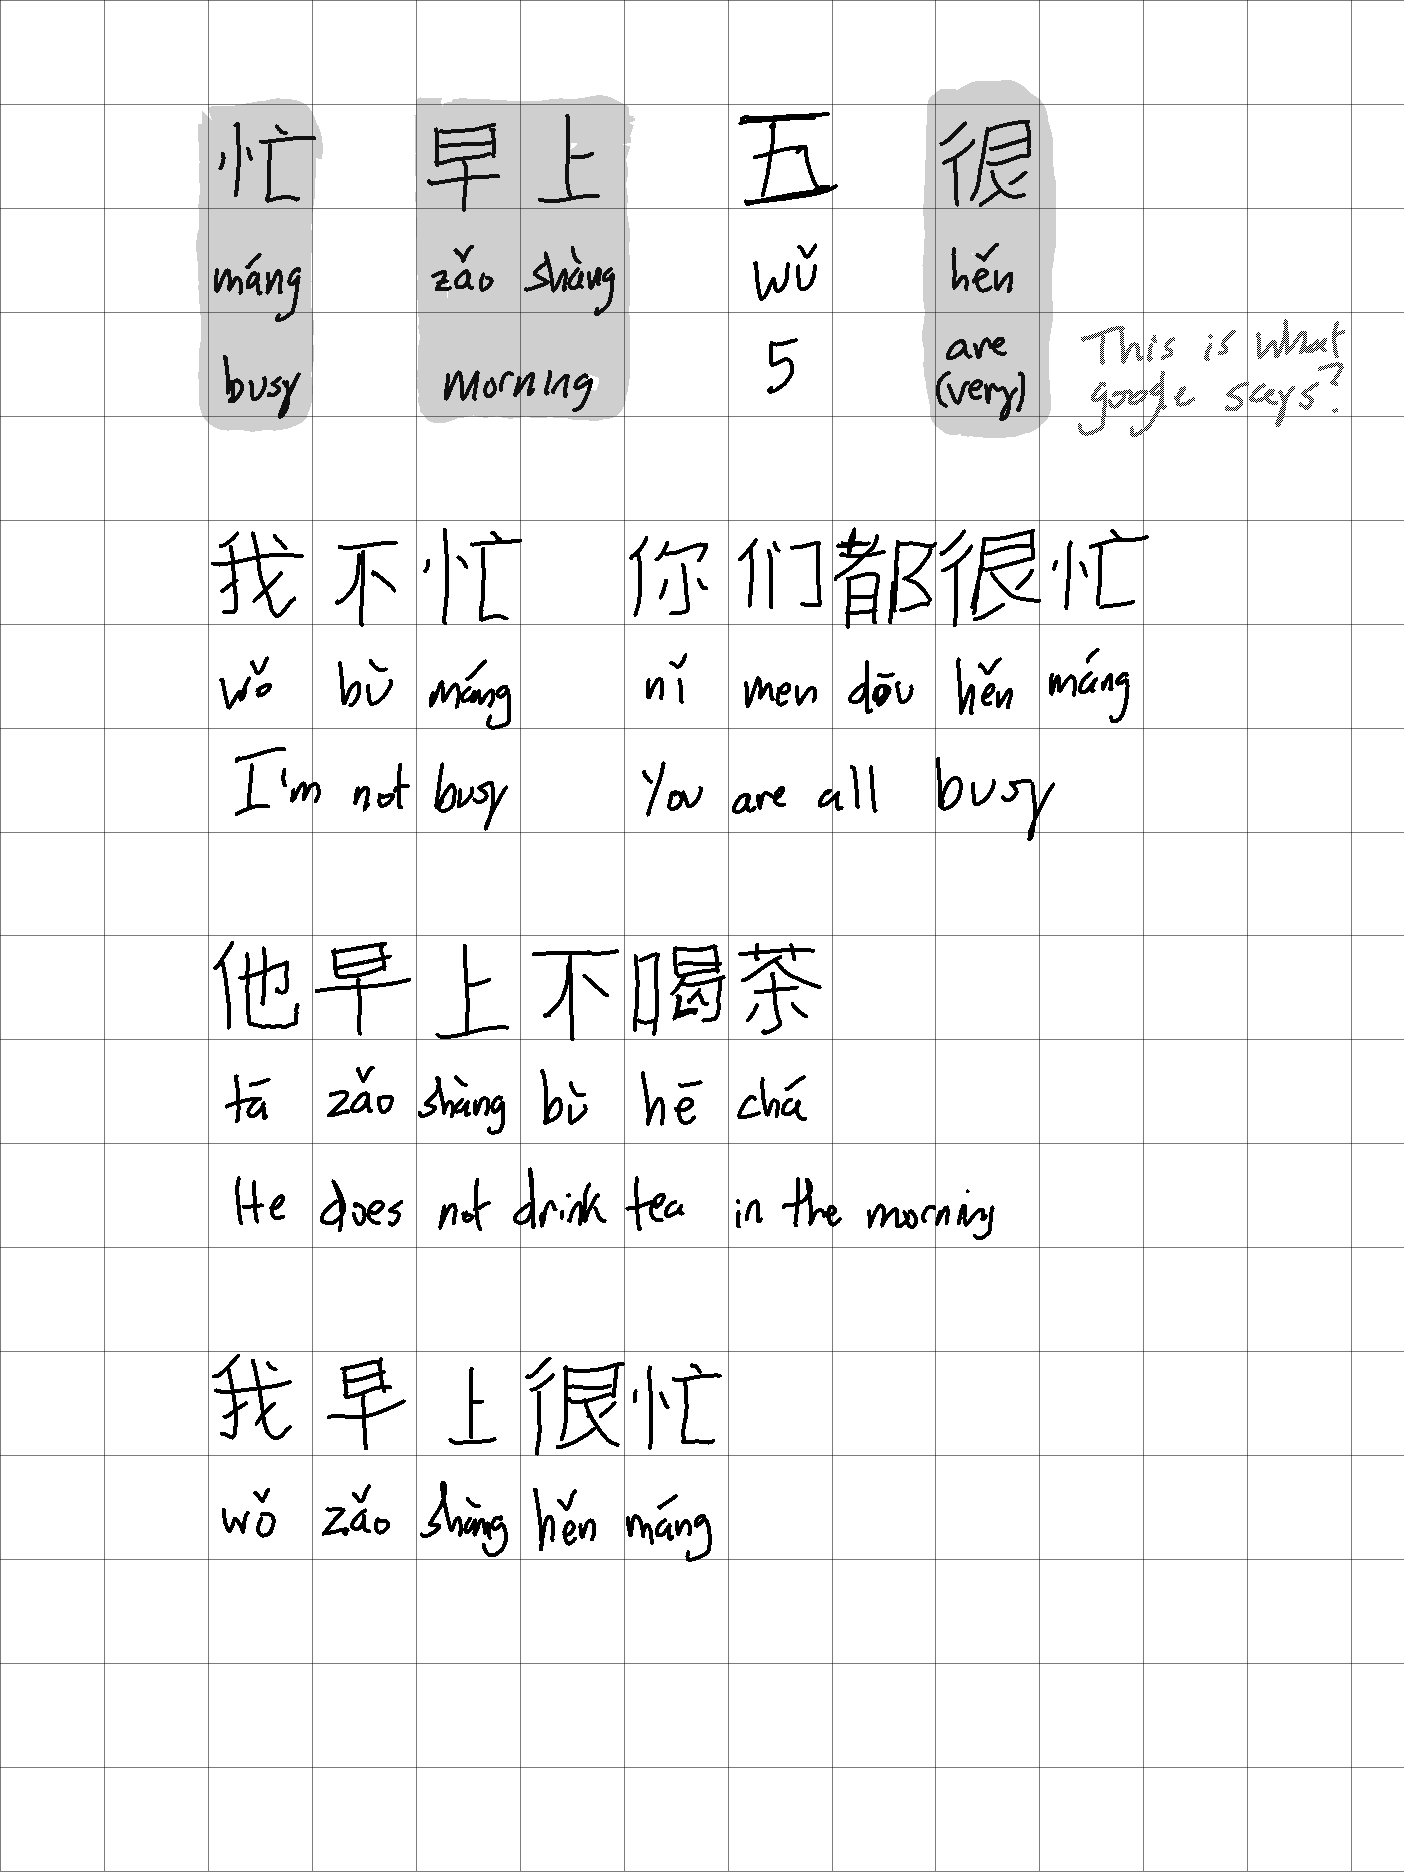 忙 早上 五 很
máng zǎo shàng wǔ hěn
busy morning 5 are (very) This is what google says?
我不忙 你们都很忙
wǒ bù máng nǐ men dōu hěn máng
I'm not busy You are all busy
他早上不喝茶
tā zǎo shàng bù hē chá
He does not drink tea in the morning
我早上很忙
wǒ zǎo shàng hěn máng